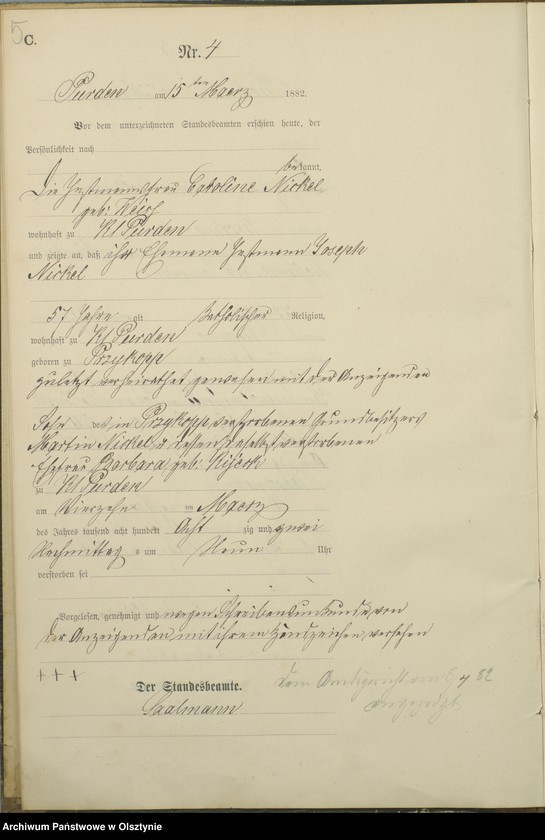 5
C.
Nr. 4
Purden am 15ten Maerz 1882.
Vor dem unterzeichneten Standesbeamten erschien heute, der
Persönlichkeit nach
bekannt,
Die Instmannsfrau Caroline Nickel
geb:
wohnhaft zu Kl Purden
und zeigte an, daß ihr Ehemann Instmann Joseph
Nickel
57 Jahre alt Katholischer Religion,
wohnhaft zu Kl Purden
geboren zu Przykopp
zuletzt verheirathet gewesen mit der Anzeigenden
Sohn des in Przykopp verstorbenen Grundbesitzers
Martin Nickel u dessen daselbst verstorbenen
Ehefrau Barbara geb:
zu Kl Purden
am Vierzehn en Maerz
des Jahres tausend acht hundert Acht zig und zwei
Nachmittag s um Neun Uhr
verstorben sei
Vorgelesen, genehmigt und wegen Schreibensunkunde von
der Anzeigenden mit ihrem Handzeichen versehen
+++
Der Standesbeamte.
Saalmann
dem Amtsgericht 82
angezeigt
Archiwum Państwowe w Olsztynie